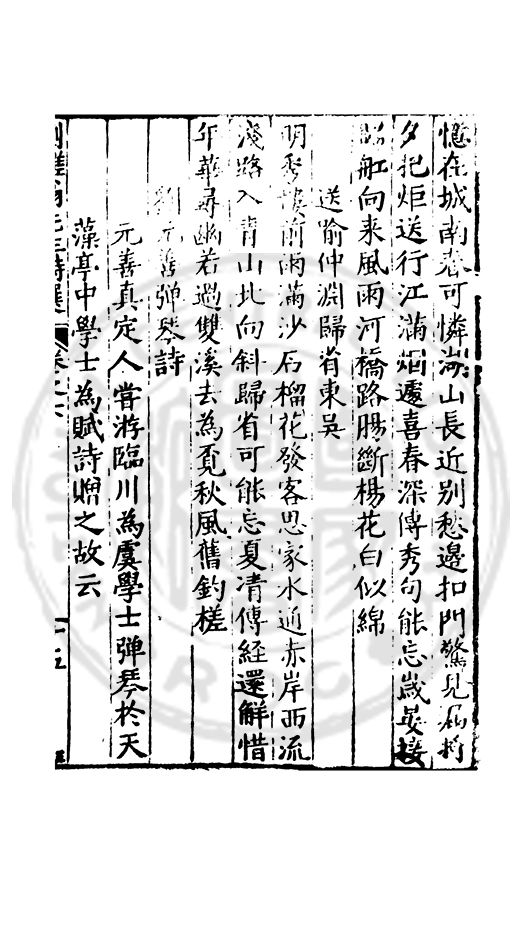 憶在城南春可憐山長近別愁邊扣門驚見將
夕把炬送行江滿烟遽喜春深傳秀句能忘歲晏接
舡向来風雨河橋路腸斷楊花白似綿
送喻仲淵歸省東吳
明秀樓前雨滿沙石榴花發客思家水通赤岸西流
淺路入青山北向斜歸省可能忘夏凊傳經還解惜
年華尋幽若過雙溪去為覓秋風舊釣槎
劉元善彈琴詩
元善真定人甞游臨川為虞學士彈琴於天
藻亭中學士為賦詩贈之故云
槎翁先生詩選 卷之 十五